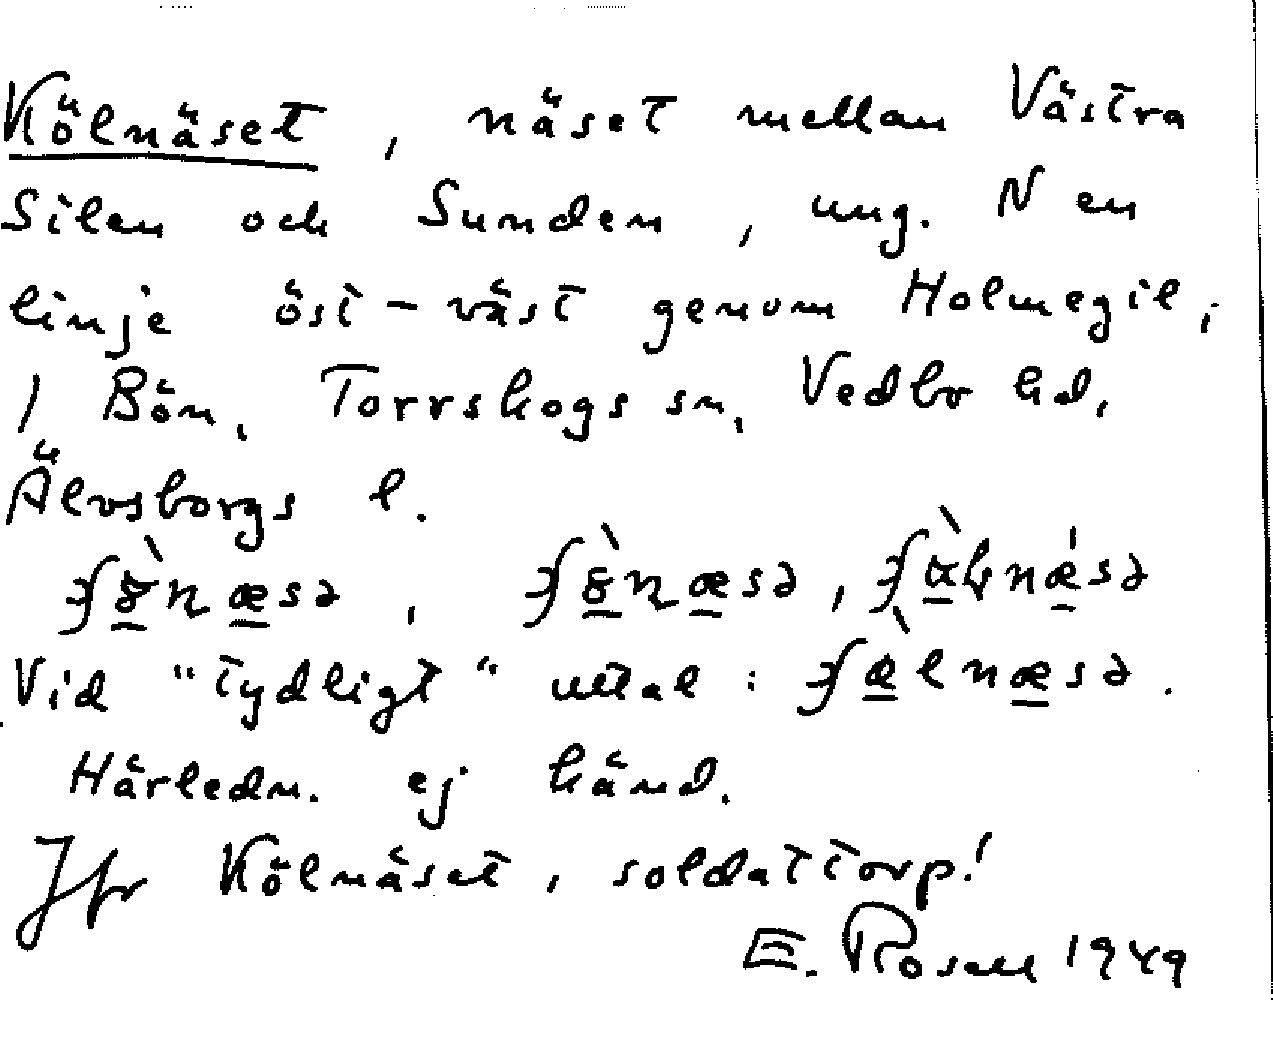 Kölnäset, näset mellan Västra
Silen och Sunden, ung. N en
linje öst-väst genom Holmegil,
1 Bön, Torrskogs sn, Vedbo hd,
Älvsborgs l.
Vid "tydligt" uttal:
Härledn. ej känd.
Jfr Kölnäset, soldattorp!
E. Rosell 1949